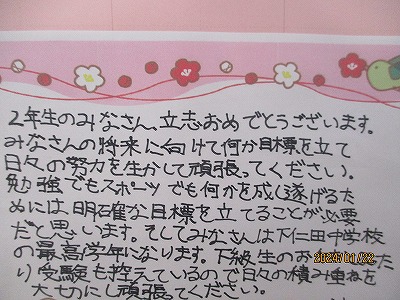 2年生のみなさん、立志おめでとうございます。
みなさんの将来に向けて何か目標を立て
日々の努力を生かして頑張ってください。
勉強でもスポーツでも何かを成し遂げるた
めには明確な目標を立てることが必要
だと思います。そしてみなさんは下仁田中学校
の最高学年になります。下級生のお
り受験も控えているので日々の積み重ねを
大切にし頑張てください。
2024/01/22